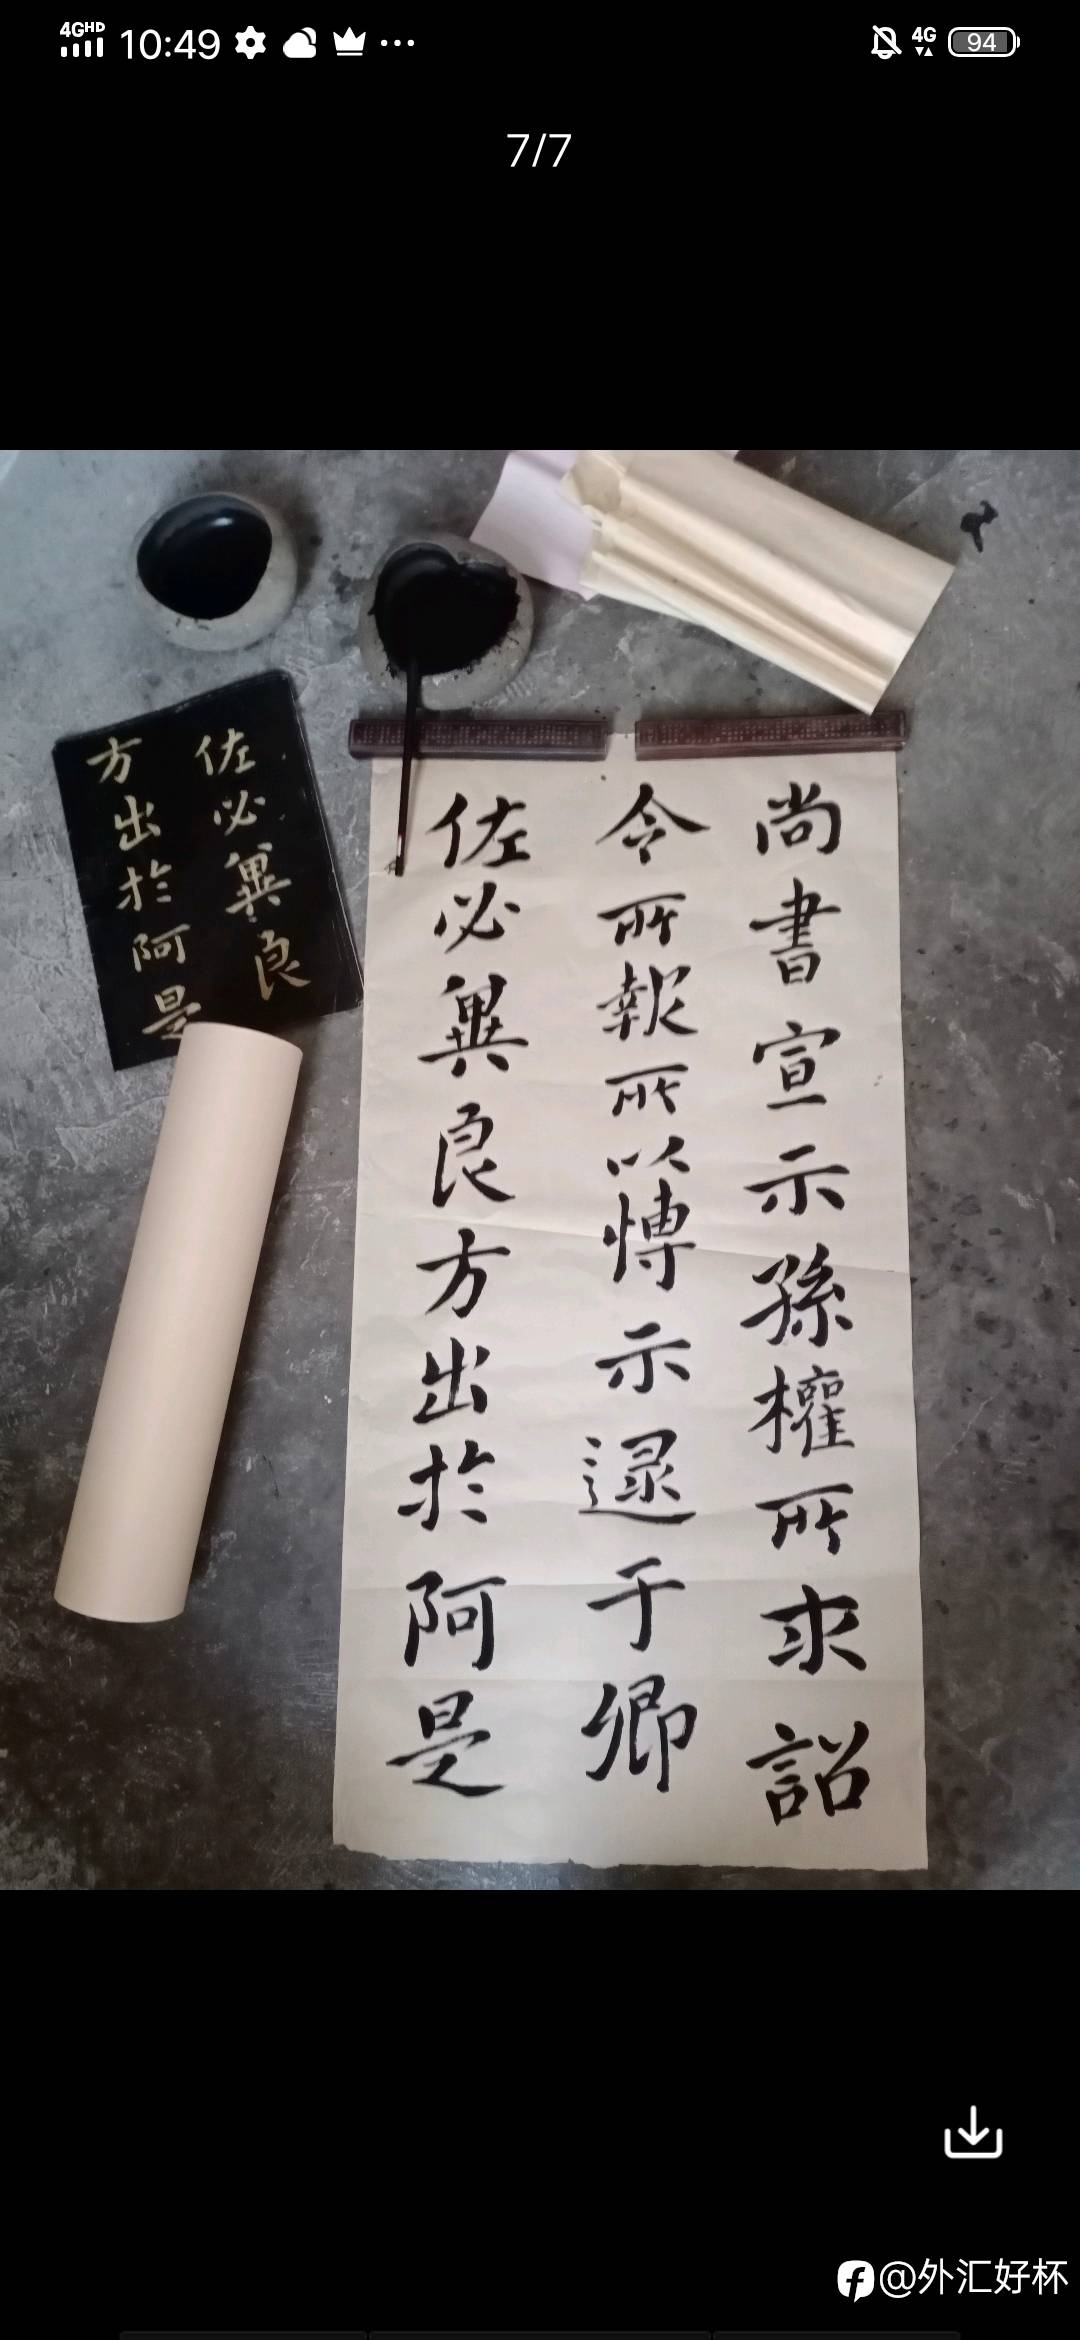 4GHD 10:49 4G 94
7/7
佐必冀良
方出於阿是
尚書宣示孫權所求詔
令所報所以愽示逮于卿
佐必冀良方出於阿是
@外汇好杯